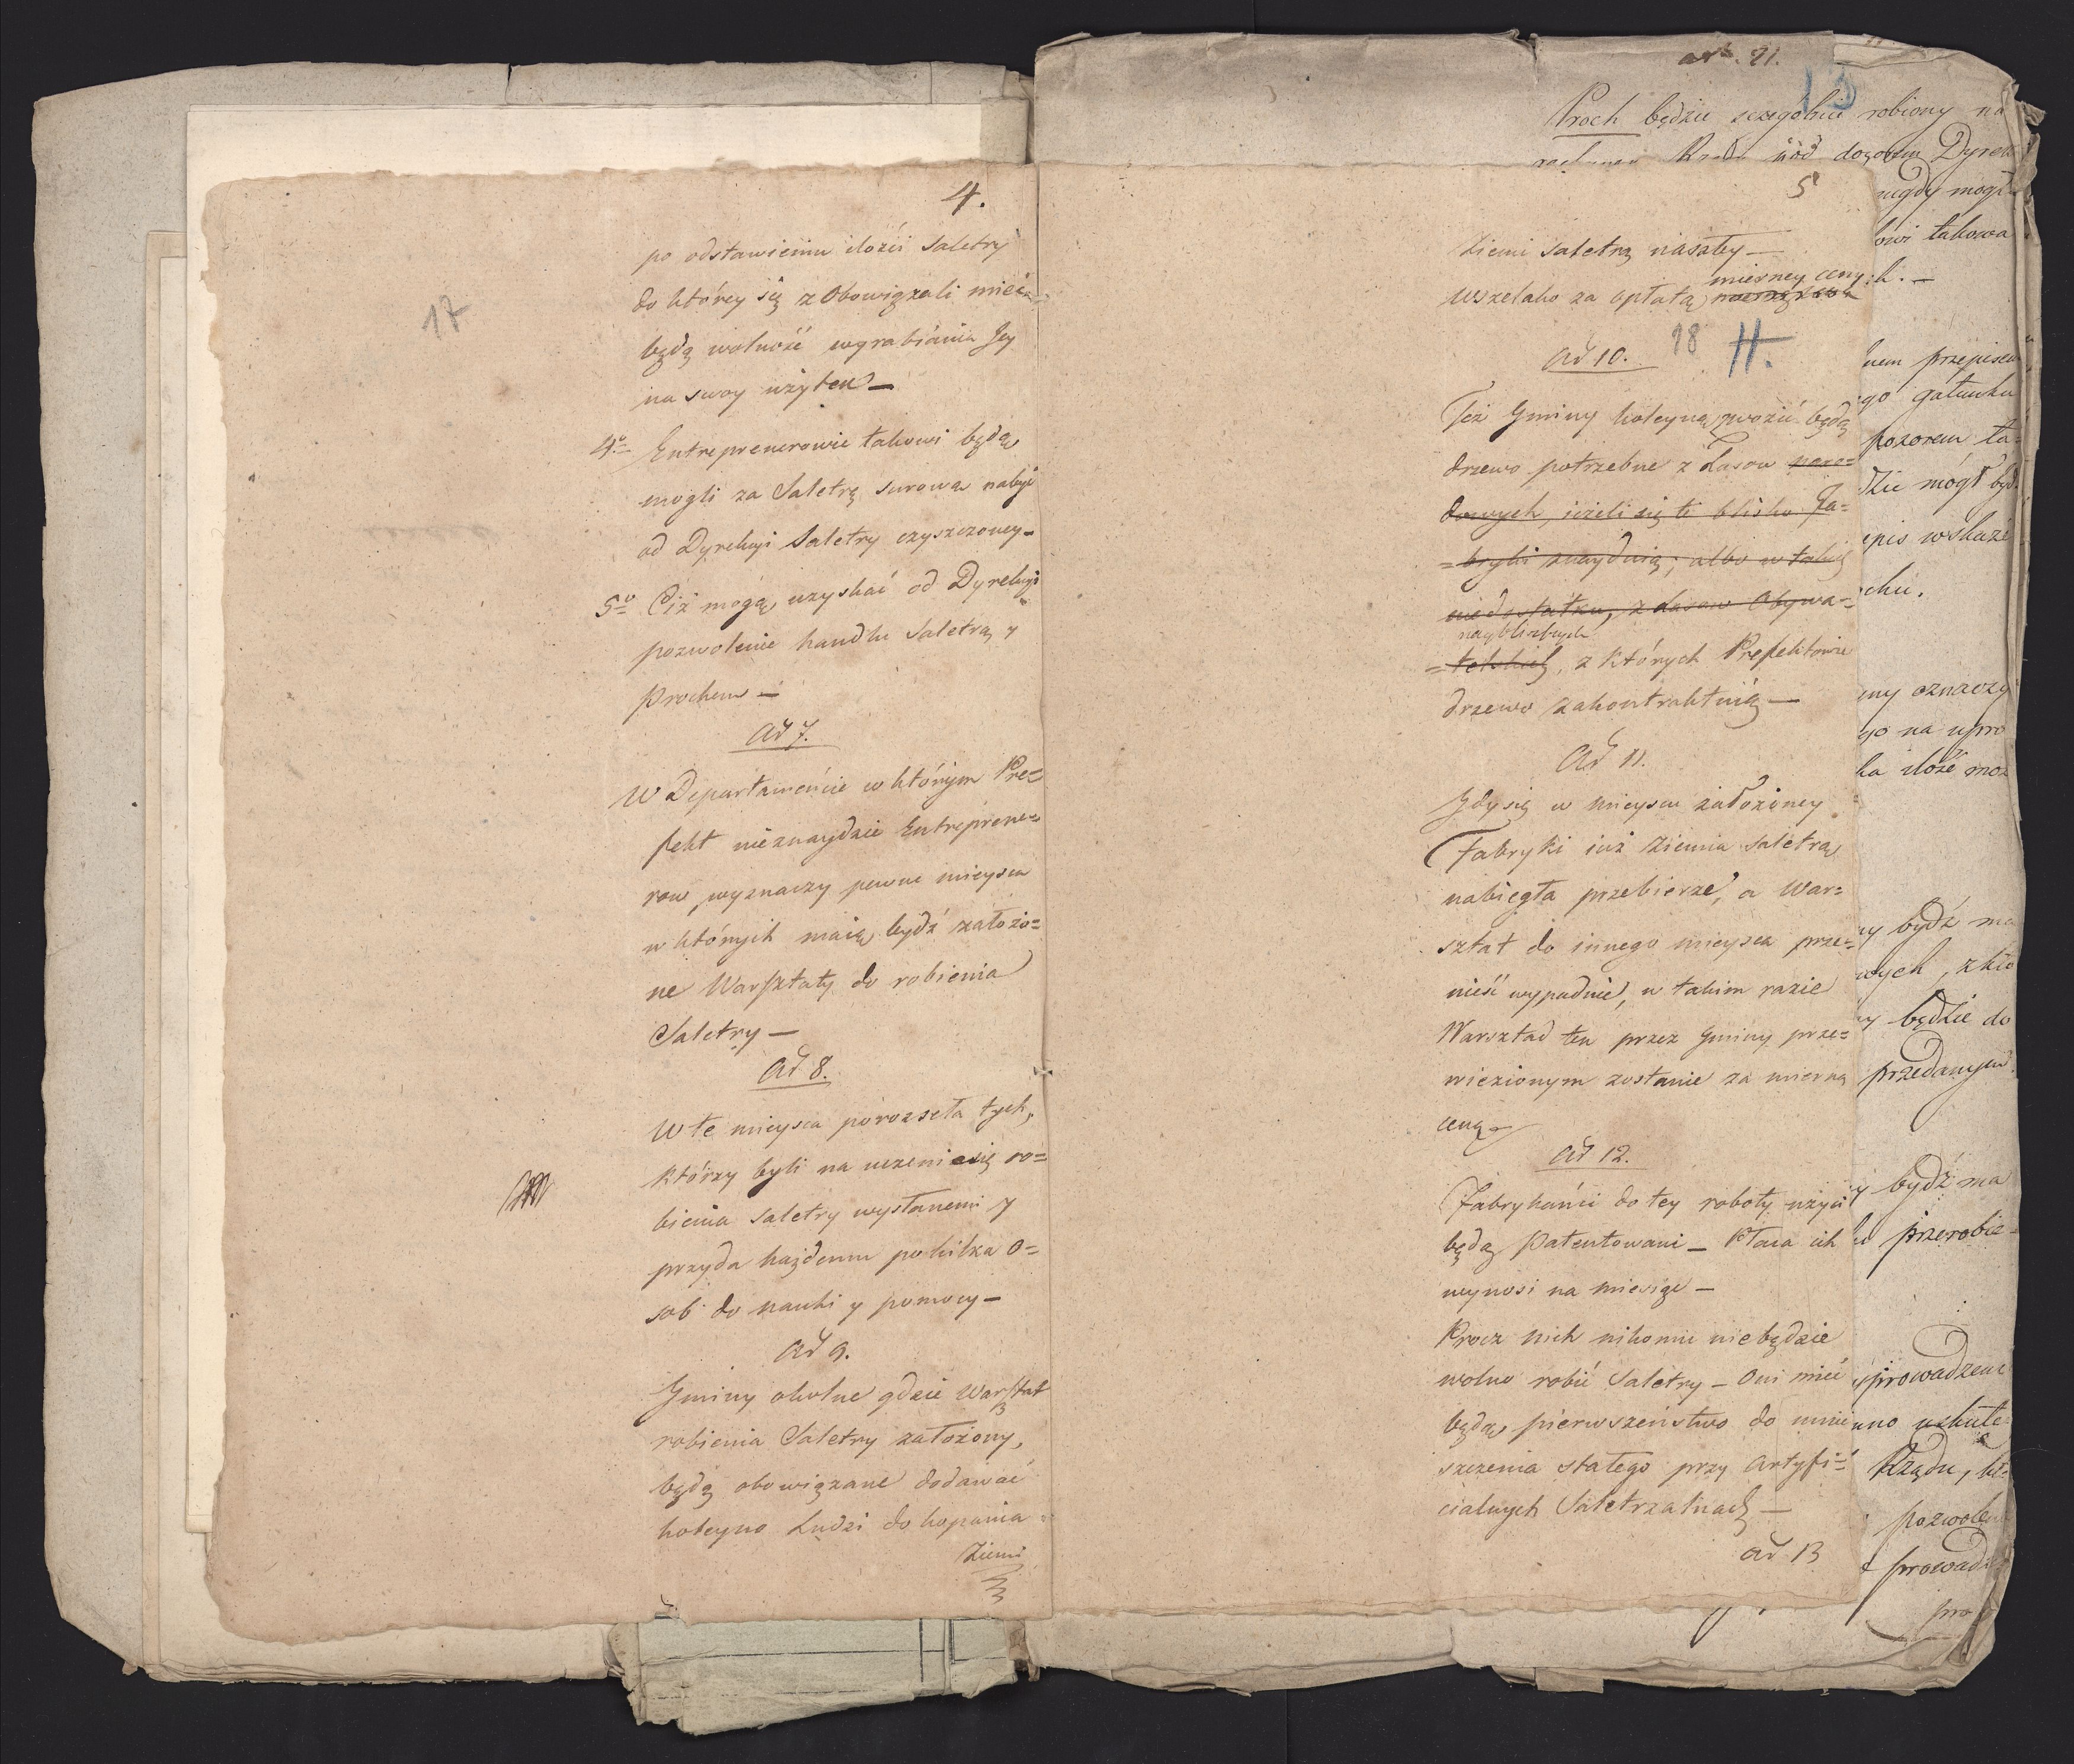 4.
17
po odstawieniu ilości Saletry
do którey się z obowiązali mieć
będą wolność wyrabiania Jey
na swoy użytek —
4o Entreprenerowie takowi będą
mogli za Saletrę surową nabyć
od Dyrekcyi Saletry czyszczoney —
5o Ciż mogą uzyskać od Dyrekcyi
pozwolenie handlu Saletrą y
Prochem —
Ad 7.
W Departamencie w którym Pre=
fekt nieznaydzie Entreprene=
row, wyznaczy pewne mieysca
w których maią bydź założo=
ne Warsztaty do robienia
Saletry —
Ad 8.
W te mieysca porozseła tych,
którzy byli na uczenie się ro=
bienia Saletry wysłanemi y
przyda każdemu po kilka o=
sob do nauki y pomocy —
Ad 9.
Gminy okolne gdzie Warsztat
robienia Saletry założony,
będą obowiązane dodawać
koleyno Ludzi do kopania
Ziemi
5
Ziemi Saletrą naszłey —
mierney ceny
wszelako za opłatą
Ad 10.
18 H.
Też Gminy koleyną zwozić będą
drzewo potrzebne z Lasow naro=
dowych, ieżeli się te blisko Fa=
=bryki znaydują; albo w takich
niedostatku, z Lasow Obywa=
naybliższych
=telskich, z których Prefektowie
drzewo zakontraktuią —
Ad 11.
Gdy się w mieyscu założoney
Fabryki iuż Ziemia Saletrą
nabiegła przebierze, a War=
sztat do innego mieysca prze=
nieść wypadnie, w takim razie
Warsztad ten przez Gminy prze=
wiezionym zostanie za mierną
cenę —
Ad 12.
Fabrykańci do tey roboty użyci
będą Patentowani — Płaca ich
wynosi na miesiąc —
Procz nich nikomu niebędzie
wolno robić Saletry — Oni mieć
będą pierwszeństwo do umie
szczenia stałego przy Artyfi=
cialnych Saletrzalniach —
Ad 13
art. 21.
13
Proch będzie szczegolnie robiony na
pod dozorem Dyrek
nigdy mogł
takowa
przepisem
go gatunku
pozorem ta=
dzie mógł być
wskaże
chu.
oznaczy
go na upro
ilość moż
bydź ma
wych, z któ
będzie do
przedanym
bydź ma
przerobie=
prowadzeni
uskute
Rządu, kt=
pozwole
prowadz
pro